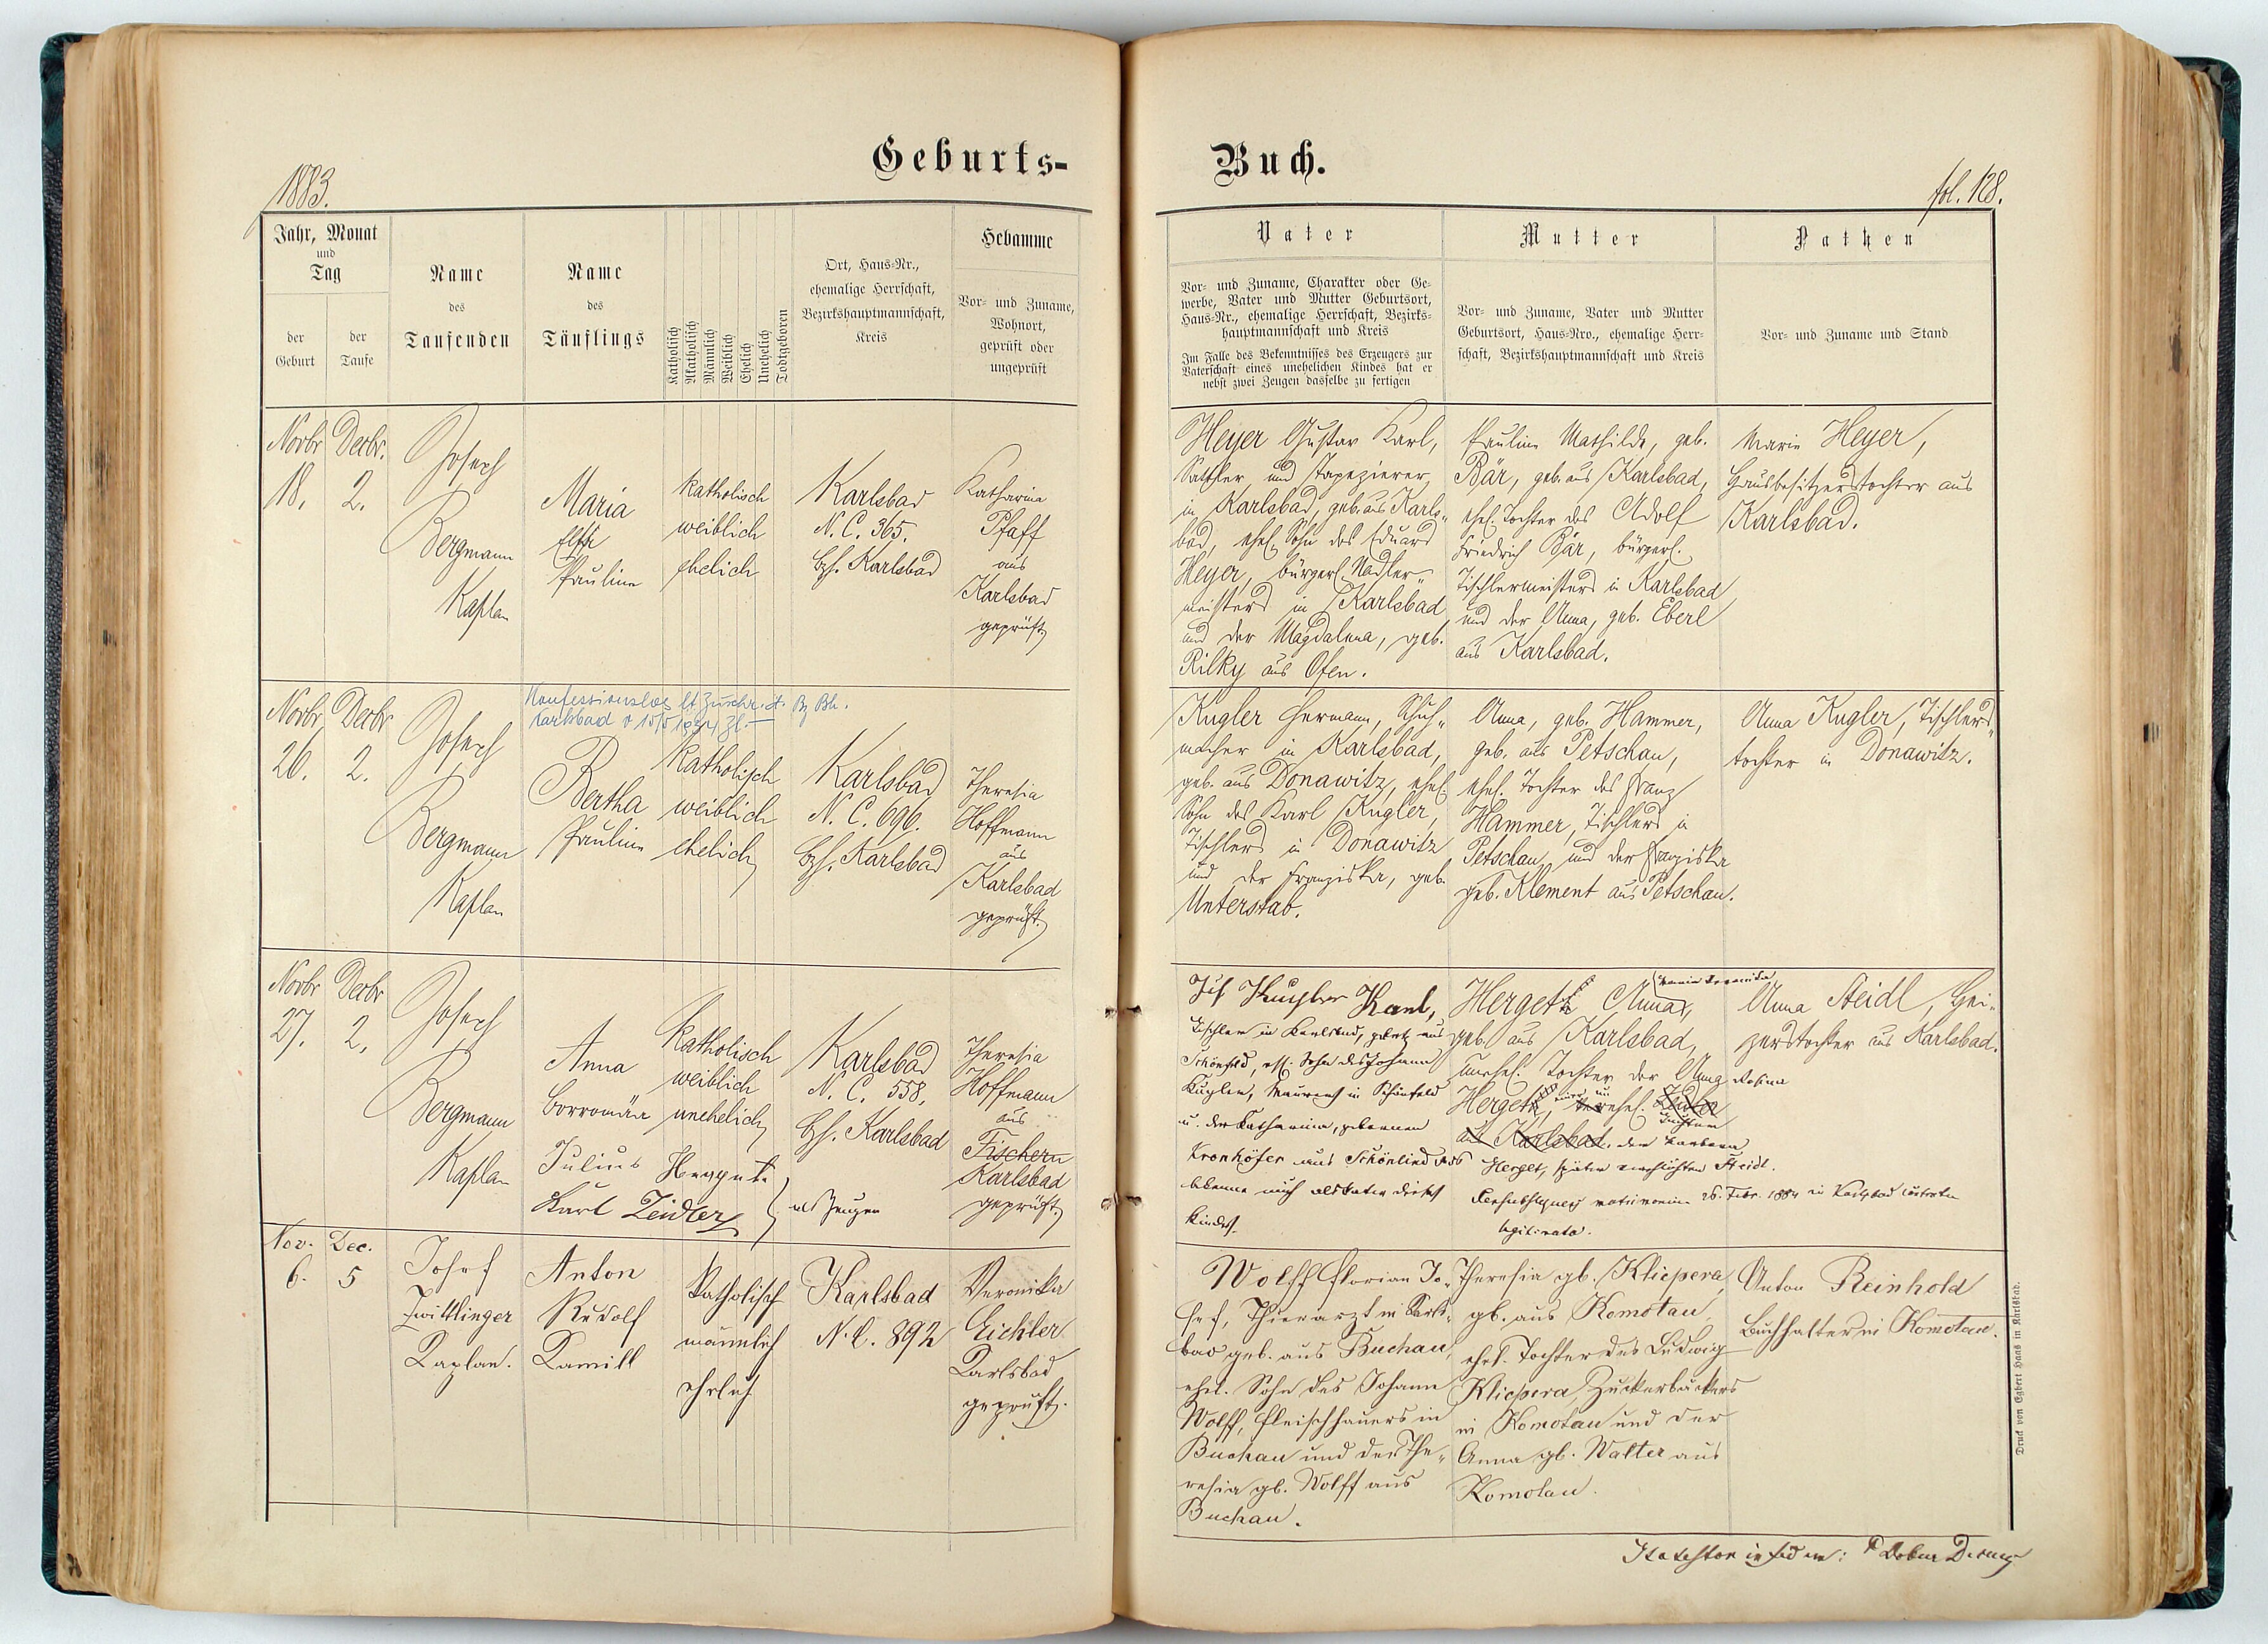 Geburts-
1883.
Jahr, Monat
und
Tag
der
Geburt
der
Taufe
Name
des
Taufenden
Name
des
Täuflings
Katholisch
Akatholisch
Männlich
Weiblich
Ehelich
Unehelich
Todtgeboren
Ort, Haus-Nr.,
ehemalige Herrschaft,
Bezirkshauptmannschaft,
Kreis
Hebamme
Vor- und Zuname,
Wohnort,
geprüft oder
ungeprüft
Novbr Decbr.
18. 2.
Joseph
Bergmann
Kaplan
Maria
Elsa
Pauline
katholisch
weiblich
ehelich
Karlsbad
N. C. 365.
Bzh. Karlsbad
Katharina
Pfaff
aus
Karlsbad
geprüft
Novbr Decbr
26. 2.
Joseph
Bergmann
Kaplan
Konfessionslos lt Zuschr. d. Bz Bh.
Karlsbad v 15/5
Bertha
Pauline
katholisch
weiblich
ehelich
Karlsbad
N. C. 696.
Bzh. Karlsbad
Theresia
Hoffmann
aus
Karlsbad
geprüft
Novbr Decbr
27. 2.
Joseph
Bergmann
Kaplan
Anna
Borromäa
katholisch
weiblich
unehelich
Karlsbad
N. C. 558.
Bzh. Karlsbad
Theresia
Hoffmann
aus
Fischern
Karlsbad
geprüft
Julius Herget
Karl Zeidler
als Zeugen
Nov. Dec.
6. 5
Josef
Zwittlinger
Kaplan.
Anton
Rudolf
Kamill
katholisch
männlich
ehelich
Karlsbad
N. C. 892
Veronika
Eichler
Karlsbad
geprüft.
Buch.
fol. 128.
Vater
Vor- und Zuname, Charakter oder Ge-
werbe, Vater und Mutter Geburtsort,
Haus-Nr., ehemalige Herrschaft, Bezirks-
hauptmannschaft und Kreis
Im Falle des Bekenntnisses des Erzeugers zur
Vaterschaft eines unehelichen Kindes hat er
nebst zwei Zeugen dasselbe zu fertigen
Mutter
Vor- und Zuname, Vater und Mutter
Geburtsort, Haus-Nro., ehemalige Herr-
schaft, Bezirkshauptmannschaft und Kreis
Pathen
Vor- und Zuname und Stand
Heyer Gustav Karl,
Sattler und Tapezierer
in Karlsbad, geb. aus Karls-
bad, ehel. Sohn des Eduard
Heyer, bürgerl. Nadler-
meisters in Karlsbad
und der Magdalena, geb.
Rilky aus Ofen.
Pauline Mathilde, geb.
Bär, geb. aus Karlsbad,
ehel. Tochter des Adolf
Friedrich Bär, bürgerl.
Tischlermeisters in Karlsbad
und der Anna, geb. Eberl
aus Karlsbad.
Marie Heyer,
Hausbesitzerstochter aus
Karlsbad.
Kugler Hermann, Schuh-
macher in Karlsbad,
geb. aus Donawitz, ehel.
Sohn des Karl Kugler,
Tischlers in Donawitz
und der Franziska, geb.
Unterstab.
Anna, geb. Hammer,
geb. aus Petschau,
ehel. Tochter des Franz
Hammer, Tischlers in
Petschau und der Franziska
geb. Klement aus Petschau.
Anna Kugler, Tischlers-
tochter in Donawitz.
Ich Kugler Karl,
Tischler in Karlsbad, gebürt. aus
Schönfeld, ehl. Sohn des Johann
Kugler, Maurers in Schönfeld
u. der Katharina, geborenen
Kronhöfer aus Schönlind No
bekenne mich als Vater dieses
Kindes.
Herget Anna,
geb. aus Karlsbad,
unehel. Tochter der Anna
Herget, verehel. Zeidler
aus Karlsbad. der Barbara
Herget, später verehlichten Steidl.
matrimonium 26. Febr. 1884 in Karlsbad
legitimata.
Anna Steidl, Hei-
zerstochter aus Karlsbad.
Wolff Florian Jo-
sef, Thierarzt in Karls-
bad geb. aus Buchau,
ehel. Sohn des Johann
Wolff, Fleischhauers in
Buchau und der The-
resia gb. Wolff aus
Buchau.
Theresia gb. Klicpera,
gb. aus Komotau,
ehel. Tochter des Ludwig
Klicpera, Zuckerbäckers
in Komotau und der
Anna gb. Walter aus
Komotau.
Anton Reinhold
Buchhalter in Komotau.
Druck von Egbert Haas in Karlsbad.